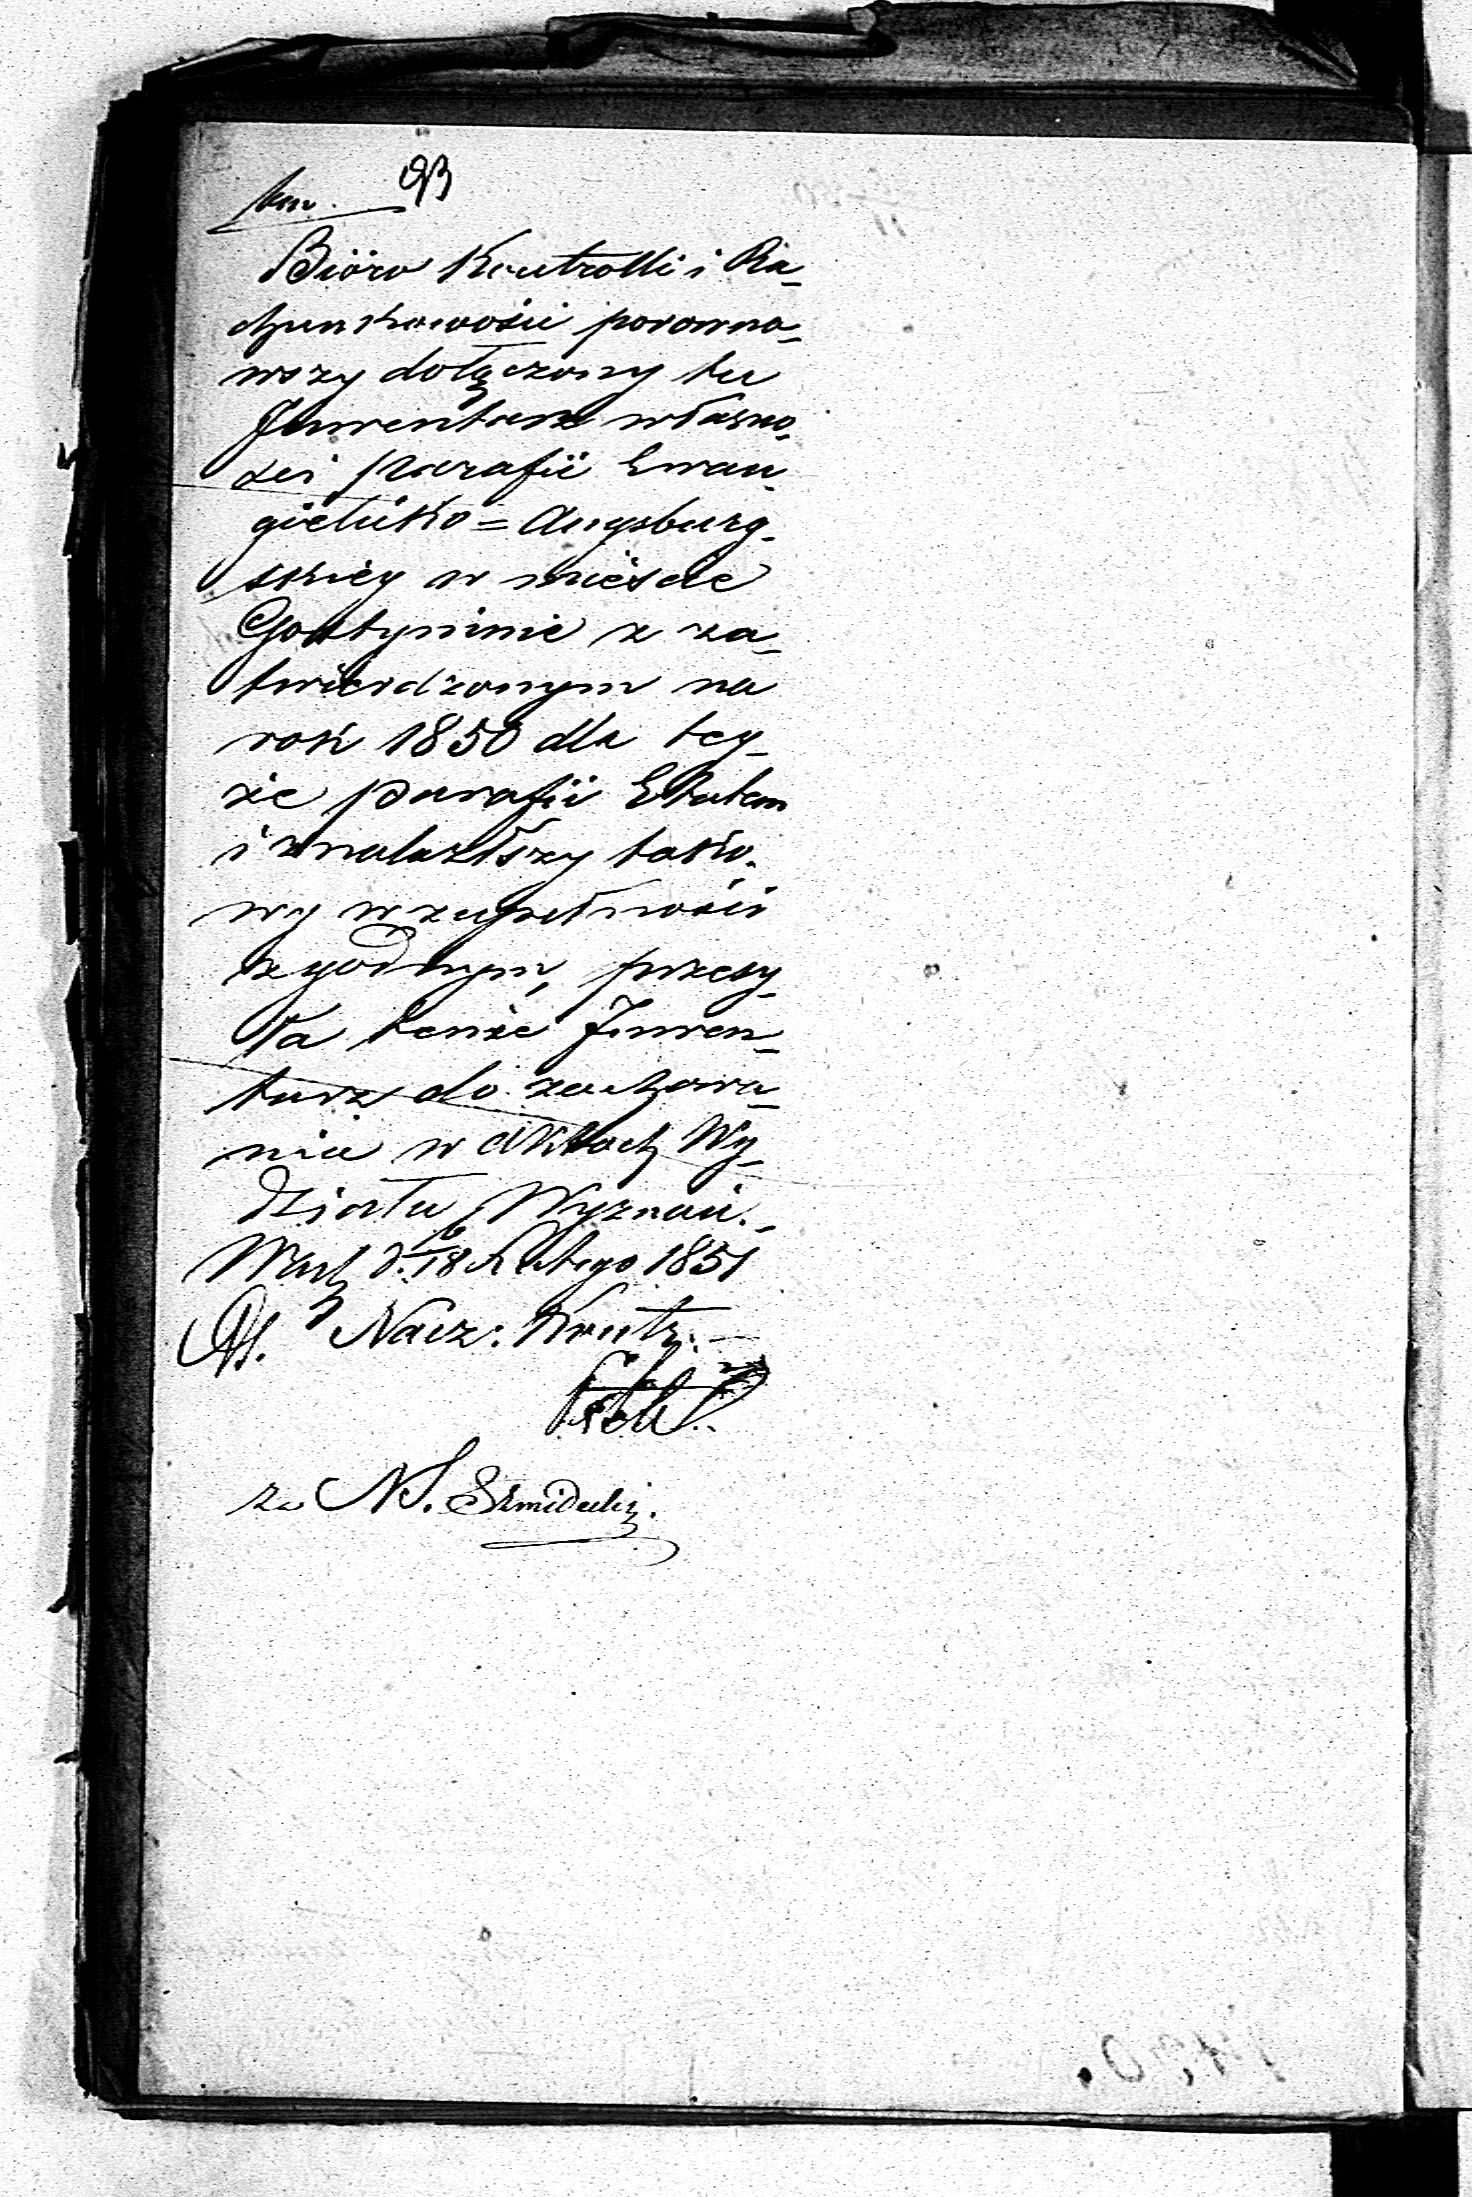 93
Bióro Kontrolli i Ra-
chunkowości porowna-
wszy dołączony tu
Inwentarz własno-
ści parafii Ewan-
gielicko=Augsburg-
skiey w mieście
Gostyninie z za-
twierdzonym na
rok 1850 dla tey-
że parafii Etatem
i znalazłszy tako-
wy w zupełności
zgodnym, przesy-
ła tenże Inwen-
tarz do zachowa-
nia w aktach Wy-
działu Wyznań.
d. 6/18 Lutego 1851
Nacz: Kontr:
za NS. Szmidecki.